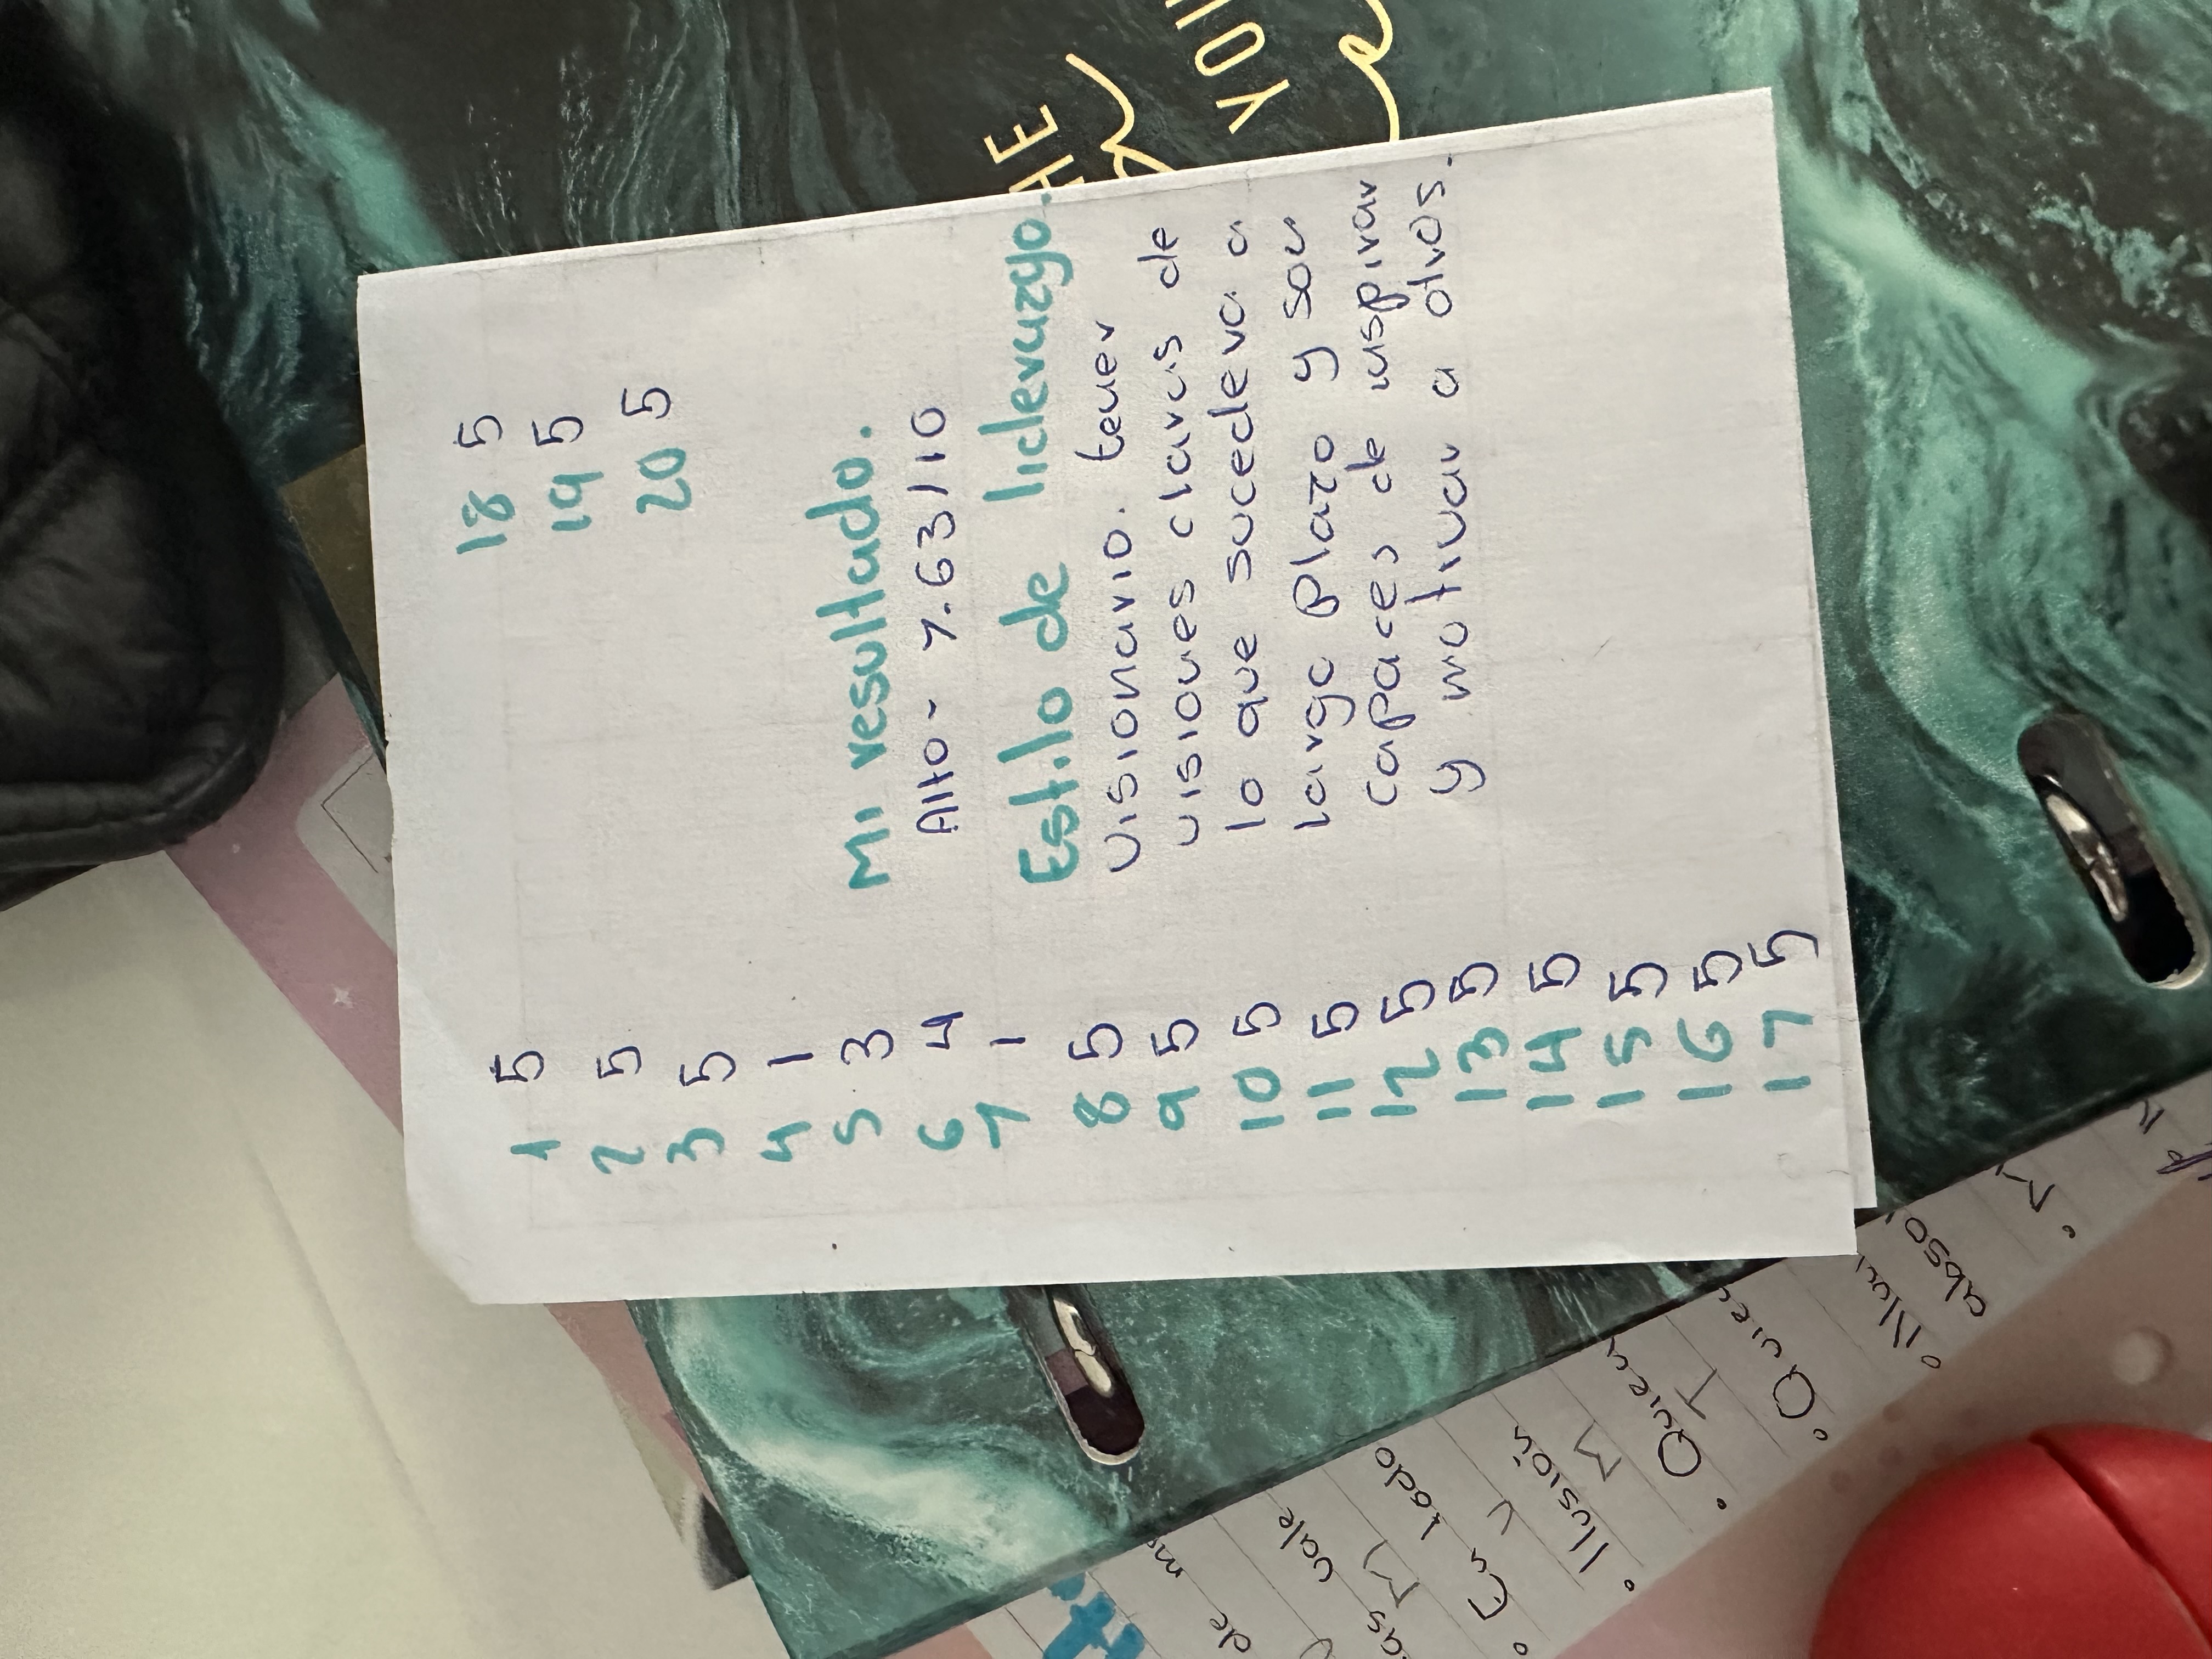 1 5
2 5
3 5
4 1
5 3
6 4
7 1
8 5
9 5
10 5
11 5
12 5
13 5
14 5
15 5
16 5
17 5
18 5
19 5
20 5
Mi resultado.
Alto - 7.63/10
Estilo de liderazgo.
Visionario. tener
visiones claras de
lo que sucedera a
largo plazo y son
capaces de inspirar
y motivar a otros.
HE
YOU
de
vale
En todo
Ilusión
M
Quien
T
abso
M